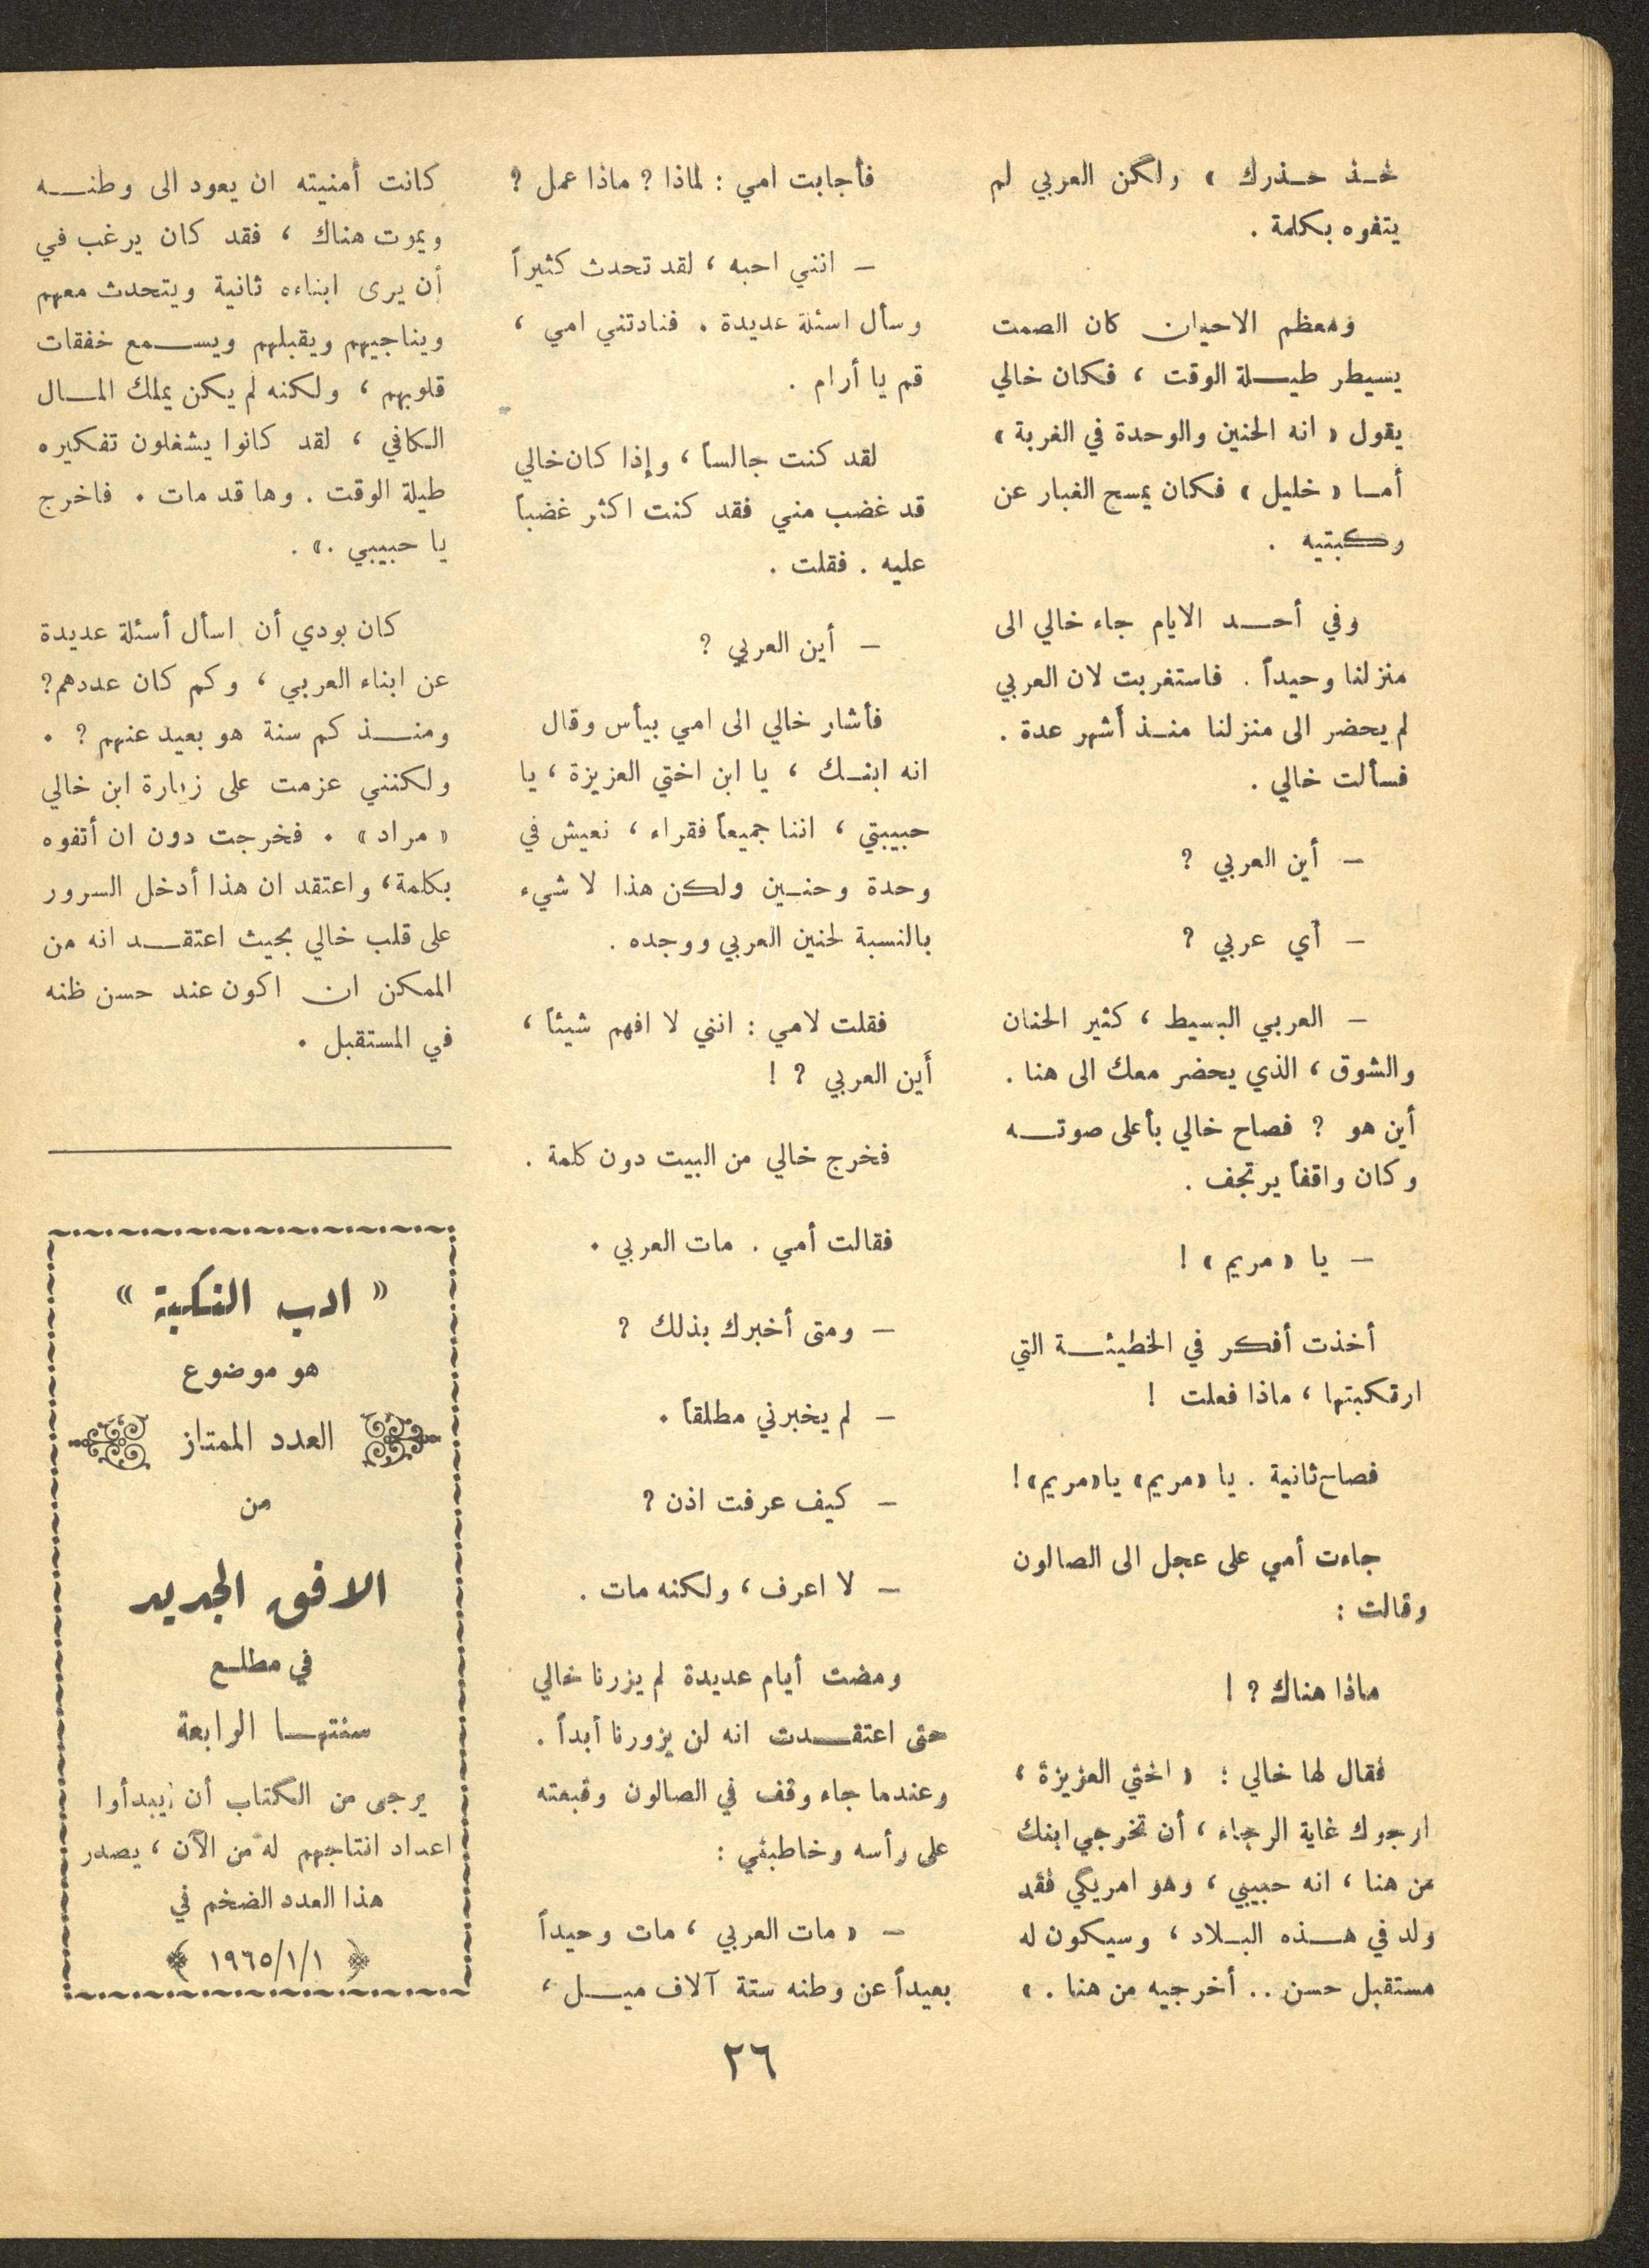 خذ حذرك » ولكن العربي لم
يتفوه بكلمة .
ومعظم الاحيان كان الصمت
يسيطر طيلة الوقت ، فكان خالي
يقول « انه الحنين والوحدة في الغربة »
أما « خليل » فكان يمسح الغبار عن
ركبتيه .
وفي أحد الايام جاء خالي الى
منزلنا وحيداً . فاستغربت لان العربي
لم يحضر الى منزلنا منذ أشهر عدة .
فسألت خالي .
– أين العربي ؟
– أي عربي ؟
– العربي البسيط ، كثير الحنان
والشوق ، الذي يحضر معك الى هنا .
أين هو ؟ فصاح خالي بأعلى صوته
وكان واقفاً يرتجف .
– يا « مريم » !
أخذت أفكر في الخطيئة التي
ارتكبتها ، ماذا فعلت !
فصاح ثانية . يا «مريم» يا «مريم» !
جاءت أمي على عجل الى الصالون
وقالت :
ماذا هناك ؟ !
فقال لها خالي : « اختي العزيزة ،
ارجوك غاية الرجاء ، أن تخرجي ابنك
من هنا ، انه حبيبي ، وهو امريكي فقد
ولد في هذه البلاد ، وسيكون له
مستقبل حسن .. أخرجيه من هنا . »
فأجابت امي : لماذا ؟ ماذا عمل ؟
– انني احبه ، لقد تحدث كثيراً
وسأل اسئلة عديدة . فنادتني امي ،
قم يا أرام .
لقد كنت جالساً ، وإذا كان خالي
قد غضب مني فقد كنت اكثر غضباً
عليه . فقلت .
– أين العربي ؟
فأشار خالي الى امي بيأس وقال
انه ابنك ، يا ابن اختي العزيزة ، يا
حبيبتي ، اننا جميعاً فقراء ، نعيش في
وحدة وحنين ولكن هذا لا شيء
بالنسبة لحنين العربي ووجده .
فقلت لامي : انني لا افهم شيئاً ،
أين العربي ؟ !
فخرج خالي من البيت دون كلمة .
فقالت أمي . مات العربي .
– ومتى أخبرك بذلك ؟
– لم يخبرني مطلقاً .
– كيف عرفت اذن ؟
– لا اعرف ، ولكنه مات .
ومضت أيام عديدة لم يزرنا خالي
حتى اعتقدت انه لن يزورنا أبداً .
وعندما جاء وقف في الصالون وقبعته
على رأسه وخاطبني :
– « مات العربي ، مات وحيداً
بعيداً عن وطنه ستة آلاف ميل ،
كانت أمنيته ان يعود الى وطنه
ويموت هناك ، فقد كان يرغب في
أن يرى ابناءه ثانية ويتحدث معهم
ويناجيهم ويقبلهم ويسمع خفقات
قلوبهم ، ولكنه لم يكن يملك المال
الكافي ، لقد كانوا يشغلون تفكيره
طيلة الوقت . وها قد مات . فاخرج
يا حبيبي .» .
كان بودي أن اسأل أسئلة عديدة
عن ابناء العربي ، وكم كان عددهم؟
ومنذ كم سنة هو بعيد عنهم ؟ .
ولكنني عزمت على زيارة ابن خالي
« مراد » . فخرجت دون ان أتفوه
بكلمة ، واعتقد ان هذا أدخل السرور
على قلب خالي بحيث اعتقد انه من
الممكن ان اكون عند حسن ظنه
في المستقبل .
« ادب النكبة »
هو موضوع
العدد الممتاز
من
الافق الجديد
في مطلع
سنتها الرابعة
يرجى من الكتاب أن يبدأوا
اعداد انتاجهم له من الآن ، يصدر
هذا العدد الضخم في
١٩٦٥/١/١
٢٦